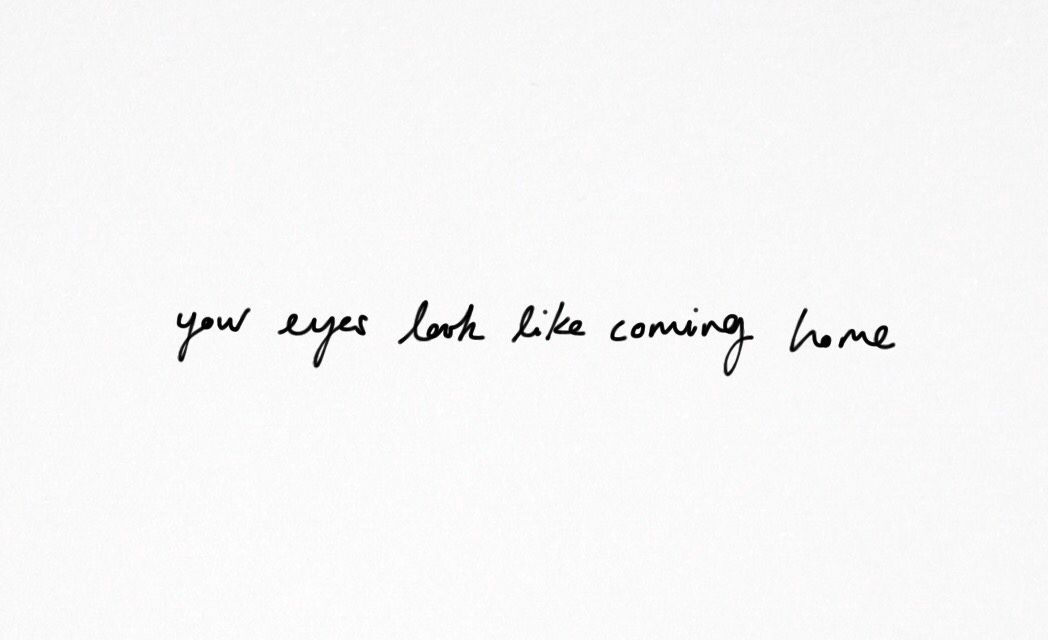 your eyes look like coming home